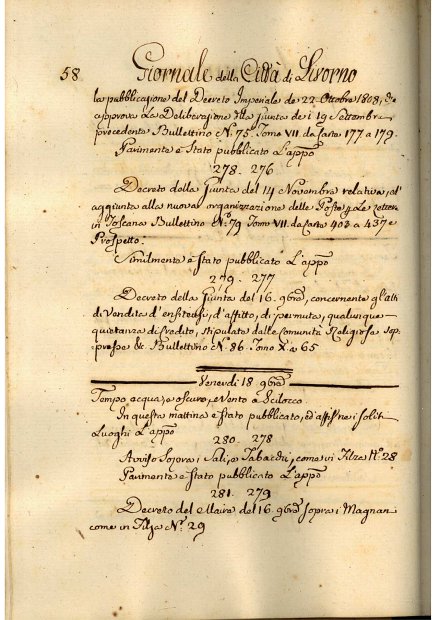 58. Giornale della Città di Livorno
la pubblicazione del Decreto Imperiale de 22. Ottobre 1808, che
approva La Deliberazione della Giunta de i 19 Settembre
precedente Bullettino N.° 75. Tomo VII. da Carte 177 a 179.
Parimente è Stato pubblicato L'appõ
278. 276
Decreto della Giunta del 14 Novembre relativo, all'
aggiunta alla nuova organizzazione delle Poste, e Le Lettere
in Toscana Bullettino N.° 79 Tomo VII. da Carte 403 a 437 e
Prospetto.
Similmente è Stato pubblicato L'appõ
279. 277
Decreto della Giunta del 16. 9bre, concernente gl'atti
di Vendita d'enfiteusi, d'affitto, di permuta, qualunque
quietanza di Credito, stipulate dalle Comunità Religiose sop-
presse &c. Bullettino N.° 86. Tomo X. a 65
Venerdì 18. 9bre
Tempo acqua, e oscuro, e Vento a Scilocco.
In questa mattina è stato pubblicato, ed affisso ne i soliti
Luoghi L'appõ
280. 278
Avviso Sopra i Sali, e Tabacchi, come in Filza N.° 28
Parimente è Stato pubblicato L'appõ
281. 279
Decreto del Maire del 16. 9bre sopra i Magnan
come in Filza N.° 29